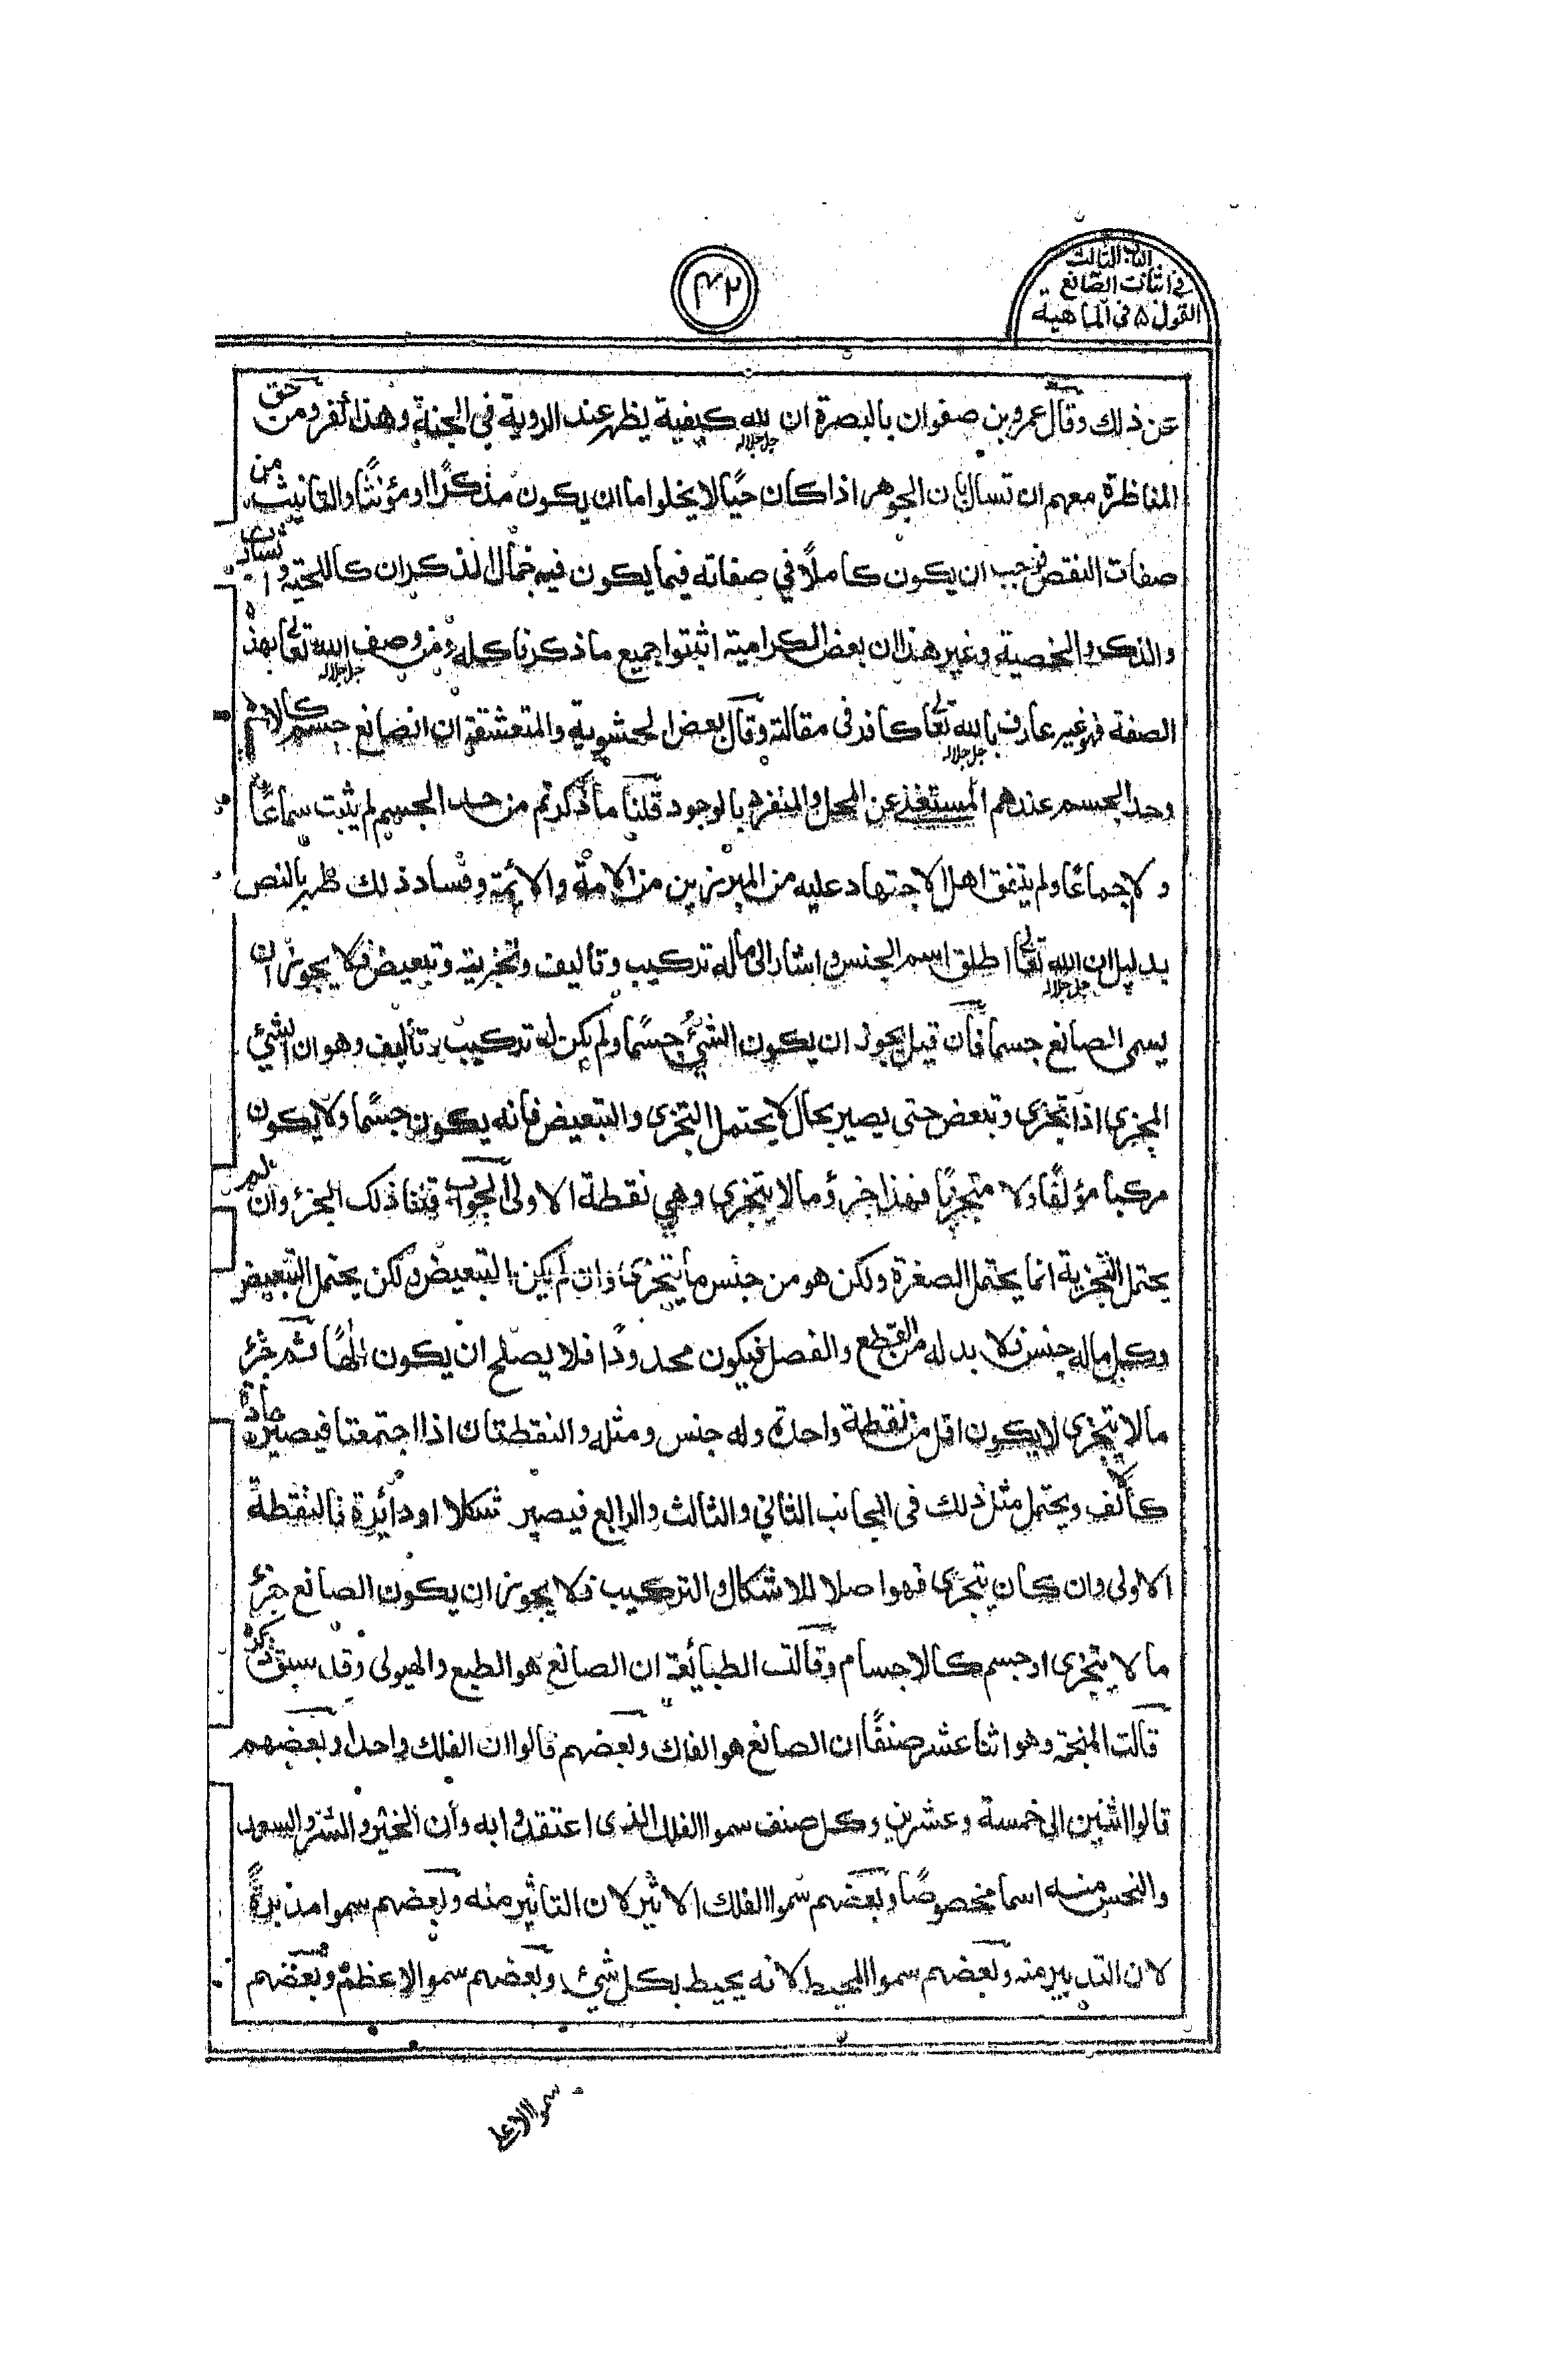 الباب الثالث
في اثبات الصانع
القول ۵ في الماهية
۴۲
عن ذلك وقال عمرو بن صفوان بالبصرة ان لله جل جلاله كيفية يظهر عند الروية في الجنة وهذا كفر ومن حق
المناظرة معهم ان تسال بان الجوهر اذا كان حيًا لا يخلوا ما ان يكون مذكرًا او مؤنثًا والتانيث من
صفات النقص فوجب ان يكون كاملًا في صفاته فيما يكون فيه خصال الذكران كاللحية و
والذكر والخصية وغير هذا ان بعض الكرامية اثبتوا جميع ما ذكرنا كله ومن وصف الله تعالى جل جلاله بهذه
الصفة فهو غير عارف بالله تعالى جل جلاله كافر في مقالته وقال بعض الحشوية والمتعشقة ان الصانع جسم كالاجسام
وحد الجسم عندهم المستغني عن المحل والمنفرد بالوجود قلنا ما ذكرتم من حد الجسم لم يثبت سماعًا
و لا جماعًا ولم يتفق اهل الاجتهاد عليه من المبرزين من الامة والائمة وفساد ذلك ظهر بالنص
بدليل ان الله تعالى جل جلاله اطلق اسم الجنس واشار الى ماله تركيب وتاليف وتجزية وتبعيض فلا يجوز ان
يسمى الصانع جسما فان قيل يجوز ان يكون الشئ جسمًا ولم يكن له تركيب وتأليف وهو ان الشئ
المجزى اذا تجزى وتبعض حتى يصير بحال لا يحتمل التجزى والتبعيض فانه يكون جسمًا ولا يكون
مركبا مؤلفًا ولا متجزيًا فهذا جزؤ ما لا يتجزى وهي نقطة الاولى الجواب قلنا ذلك الجزئ وان لم
يحتمل التجزية انما يحتمل الصغرة ولكن هو من جنس ما يتجزى وان لم يكن التبعيض ولكن يحتمل التبعيض
وكل ماله جنس فلا بد له من القطع والفصل فيكون محدودًا فلا يصلح ان يكون الهًا ثم جزئ
ما لا يتجزى لا يكون اقل من نقطة واحدة وله جنس ومثله والنقطتان اذا اجتمعتا فيصير مادة
كألف ويحتمل مثل ذلك في الجانب الثاني والثالث والرابع فيصير شكلا او دائرة فالنقطة
الاولى وان كان يتجزى فهو اصلا للاشكال والتركيب فلا يجوز ان يكون الصانع جزئ
ما لا يتجزى او جسم كالاجسام وقالت الطبائعة ان الصانع هو الطبع والهيولى وقد سبق ذكره
قالت المنجمة وهو اثنا عشر صنفًا ان الصانع هو الفلك وبعضهم قالوا ان الفلك واحد وبعضهم
قالوا اثنين الى خمسة وعشرين وكل صنف سموا الفلك الذى اعتقدوا به وأن الخير والشر والسعد
والنحس منه اسما مخصوصًا وبعضهم سموا الفلك الاثير لان التاثير منه وبعضهم سموا مدبرةً
لان التدبير منه وبعضهم سموا المحيط لانه يحيط بكل شئ وبعضهم سموا الاعظم وبعضهم
سموا الاعلى